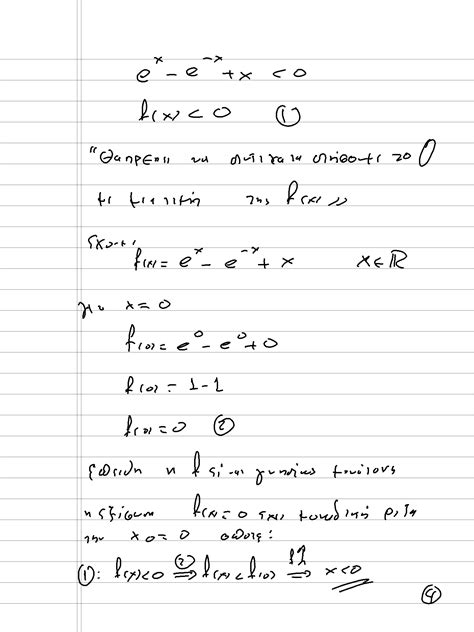 e^x - e^{-x} + x < 0
f(x) < 0 ①
"Θα πρέπει να αντικαταστήσουμε το 0
με την τιμή της f(x) »
Έχουμε
f(x) = e^x - e^{-x} + x x ∈ ℝ
για x = 0
f(0) = e^0 - e^0 + 0
f(0) = 1 - 1
f(0) = 0 ②
Επειδή η f είναι γνησίως
η εξίσωση f(x) = 0 έχει μοναδική ρίζα
την x_0 = 0 οπότε:
①: f(x) < 0 ⇒^② f(x) < f(0) ⇒ x < 0
④